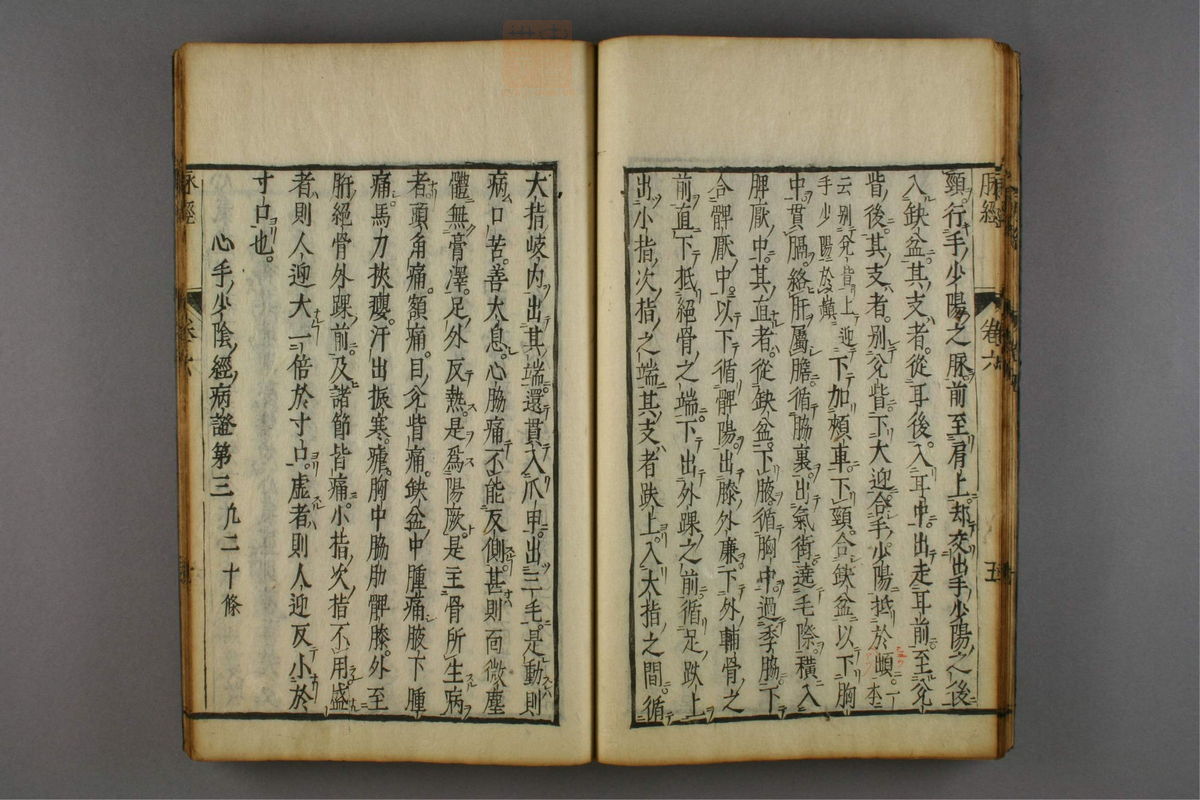 脉經
卷六
五
頸行手少陽之脉前至肩上却交出手少陽之後
入缺盆其支者從耳後入耳中出走耳前至兊
眥後其支者別兊眥下大迎合手少陽抵於䪼一本
云別兊眥上迎
手少陽於巔下加頰車下頸合缺盆以下胸
中貫膈絡肝屬膽循脇裏出氣街遶毛際橫入
髀厭中其直者從缺盆下腋循胸中過季脇下
合髀厭中以下循髀陽出膝外廉下外輔骨之
前直下抵絕骨之端下出外踝之前循足跌上
出小指次指之端其支者跌上入大指之間循
大指岐内出其端還貫入爪甲出三毛是動則
病口苦善太息心脇痛不能反側甚則面微塵
體無膏澤足外反熱是爲陽厥是主骨所生病
者頭角痛頷痛目兊眥痛缺盆中腫痛腋下腫
痛馬刀挾癭汗出振寒瘧胸中脇肋髀膝外至
䯒絕骨外踝前及諸節皆痛小指次指不用盛
者則人迎大一倍於寸口虛者則人迎反小於
寸口也
心手少陰經病證第三 凡二十條
脉經
卷六